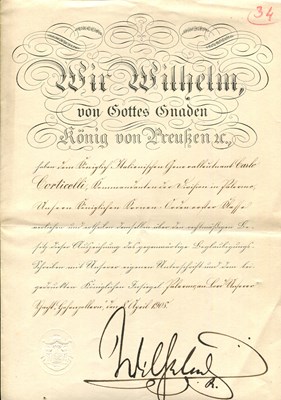 34
Wir Wilhelm,
von Gottes Gnaden
König von Preußen ꝛc,
haben dem Königlich Italienischen Generallieutenant Carlo
Corticelli, Kommandanten der Division in Palermo,
Unseren Königlichen Kronen-Orden erster Klasse
verliehen und ertheilen demselben über den rechtmäßigen Be-
sitz dieser Auszeichnung das gegenwärtige Beglaubigungs-
Schreiben mit Unserer eigenen Unterschrift und dem bei-
gedruckten Königlichen Insiegel. Palermo, an Bord Unserer
Yacht Hohenzollern, den April 1905.
Wilhelm
R.